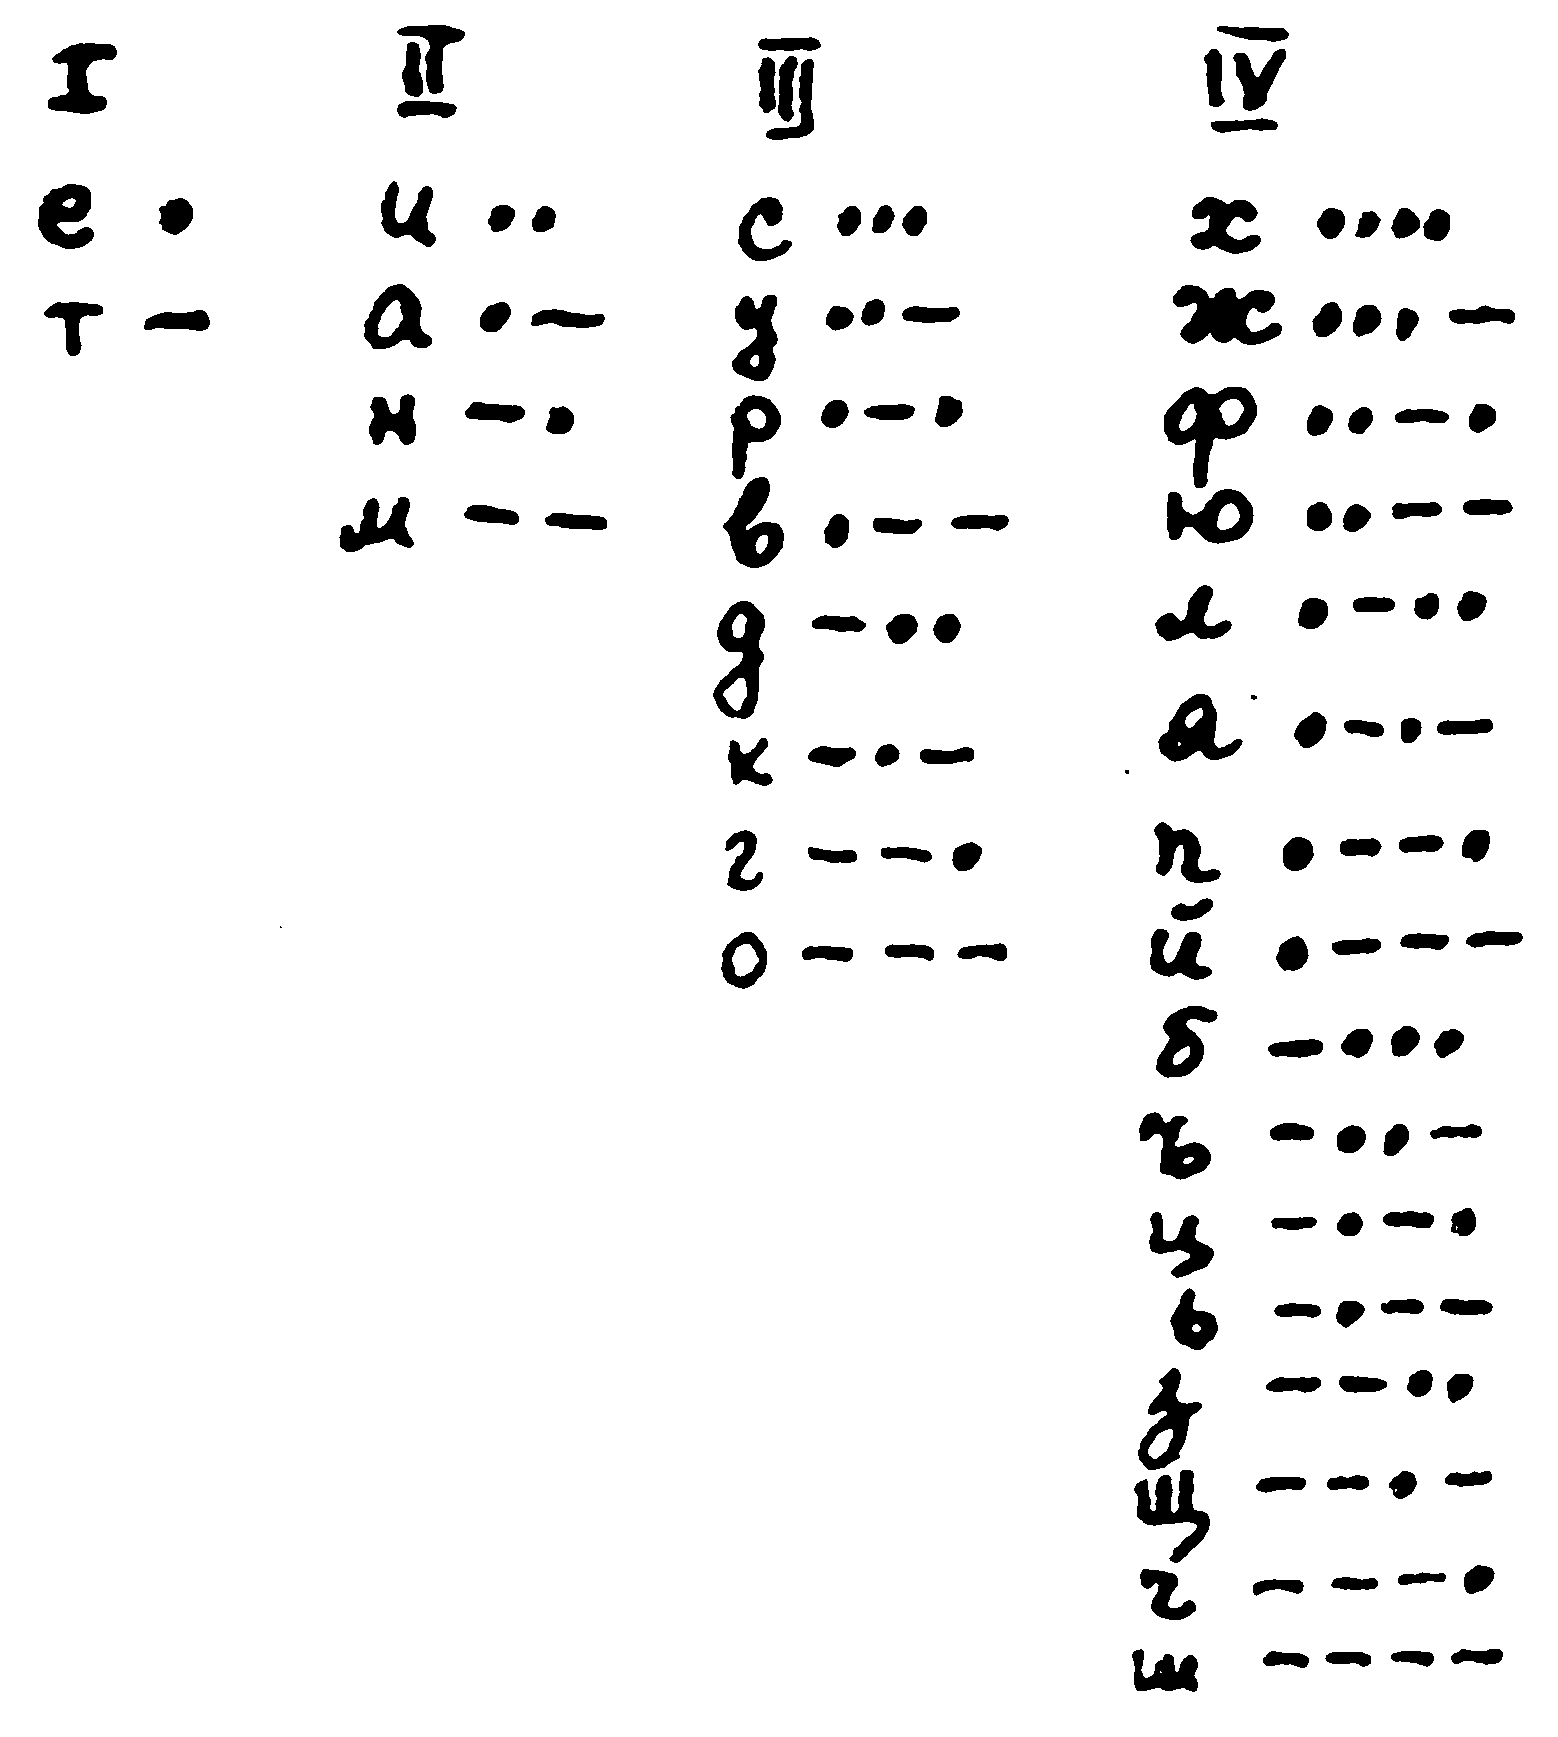 I
е •
т —
II
и • •
а • —
н — •
м — —
III
с • • •
у • • —
р • — •
в • — —
д — • •
к — • —
г — — •
о — — —
IV
х • • • •
ж • • • —
ф • • — •
ю • • — —
л • — • •
я • — • —
п • — — •
й • — — —
б — • • •
ъ — • • —
ц — • — •
ь — • — —
з — — • •
щ — — • —
ч — — — •
ш — — — —